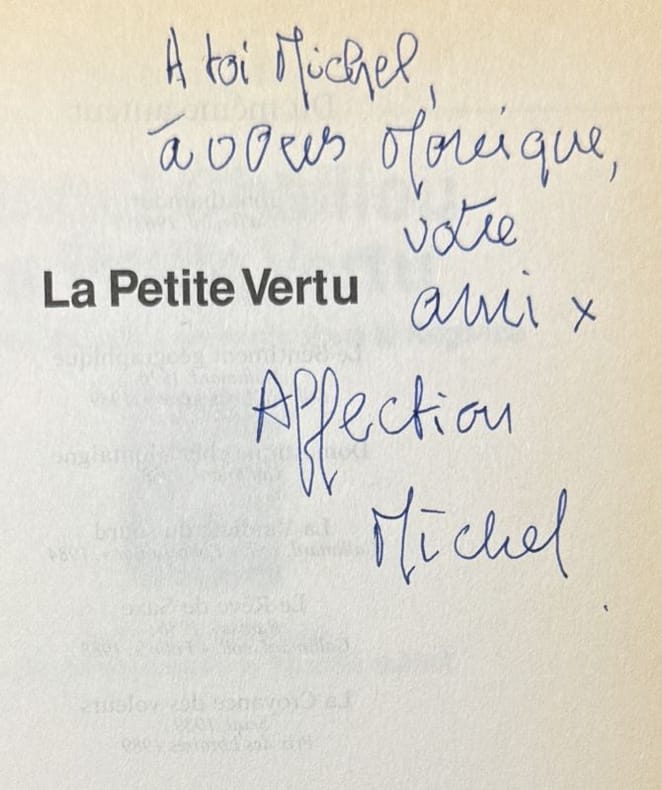 A toi Michel,
à vous Monique,
votre
La Petite Vertu
ami x
Affection
Michel